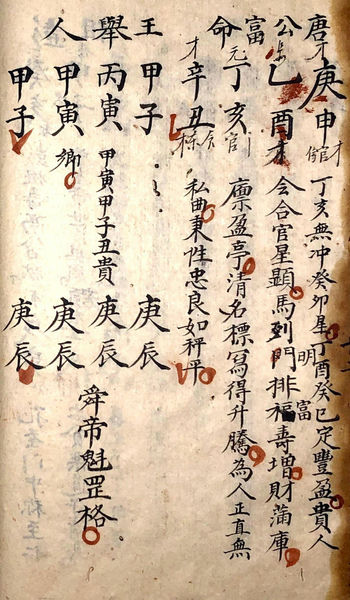 唐才庚申 丁亥無沖癸卯星丁酉癸巳定豐盈貴人
公乙酉才 今合官星顯馬列門排福壽增財蒲庫
富命元丁亥官 廪盈亭清名標寫得升騰為人正直無
才辛丑 私曲秉性忠良如秤平
王甲子 庚辰
舉丙寅 甲寅甲子丑貴 庚辰
人甲寅鄉 庚辰
甲子 庚辰
舜帝魁罡格